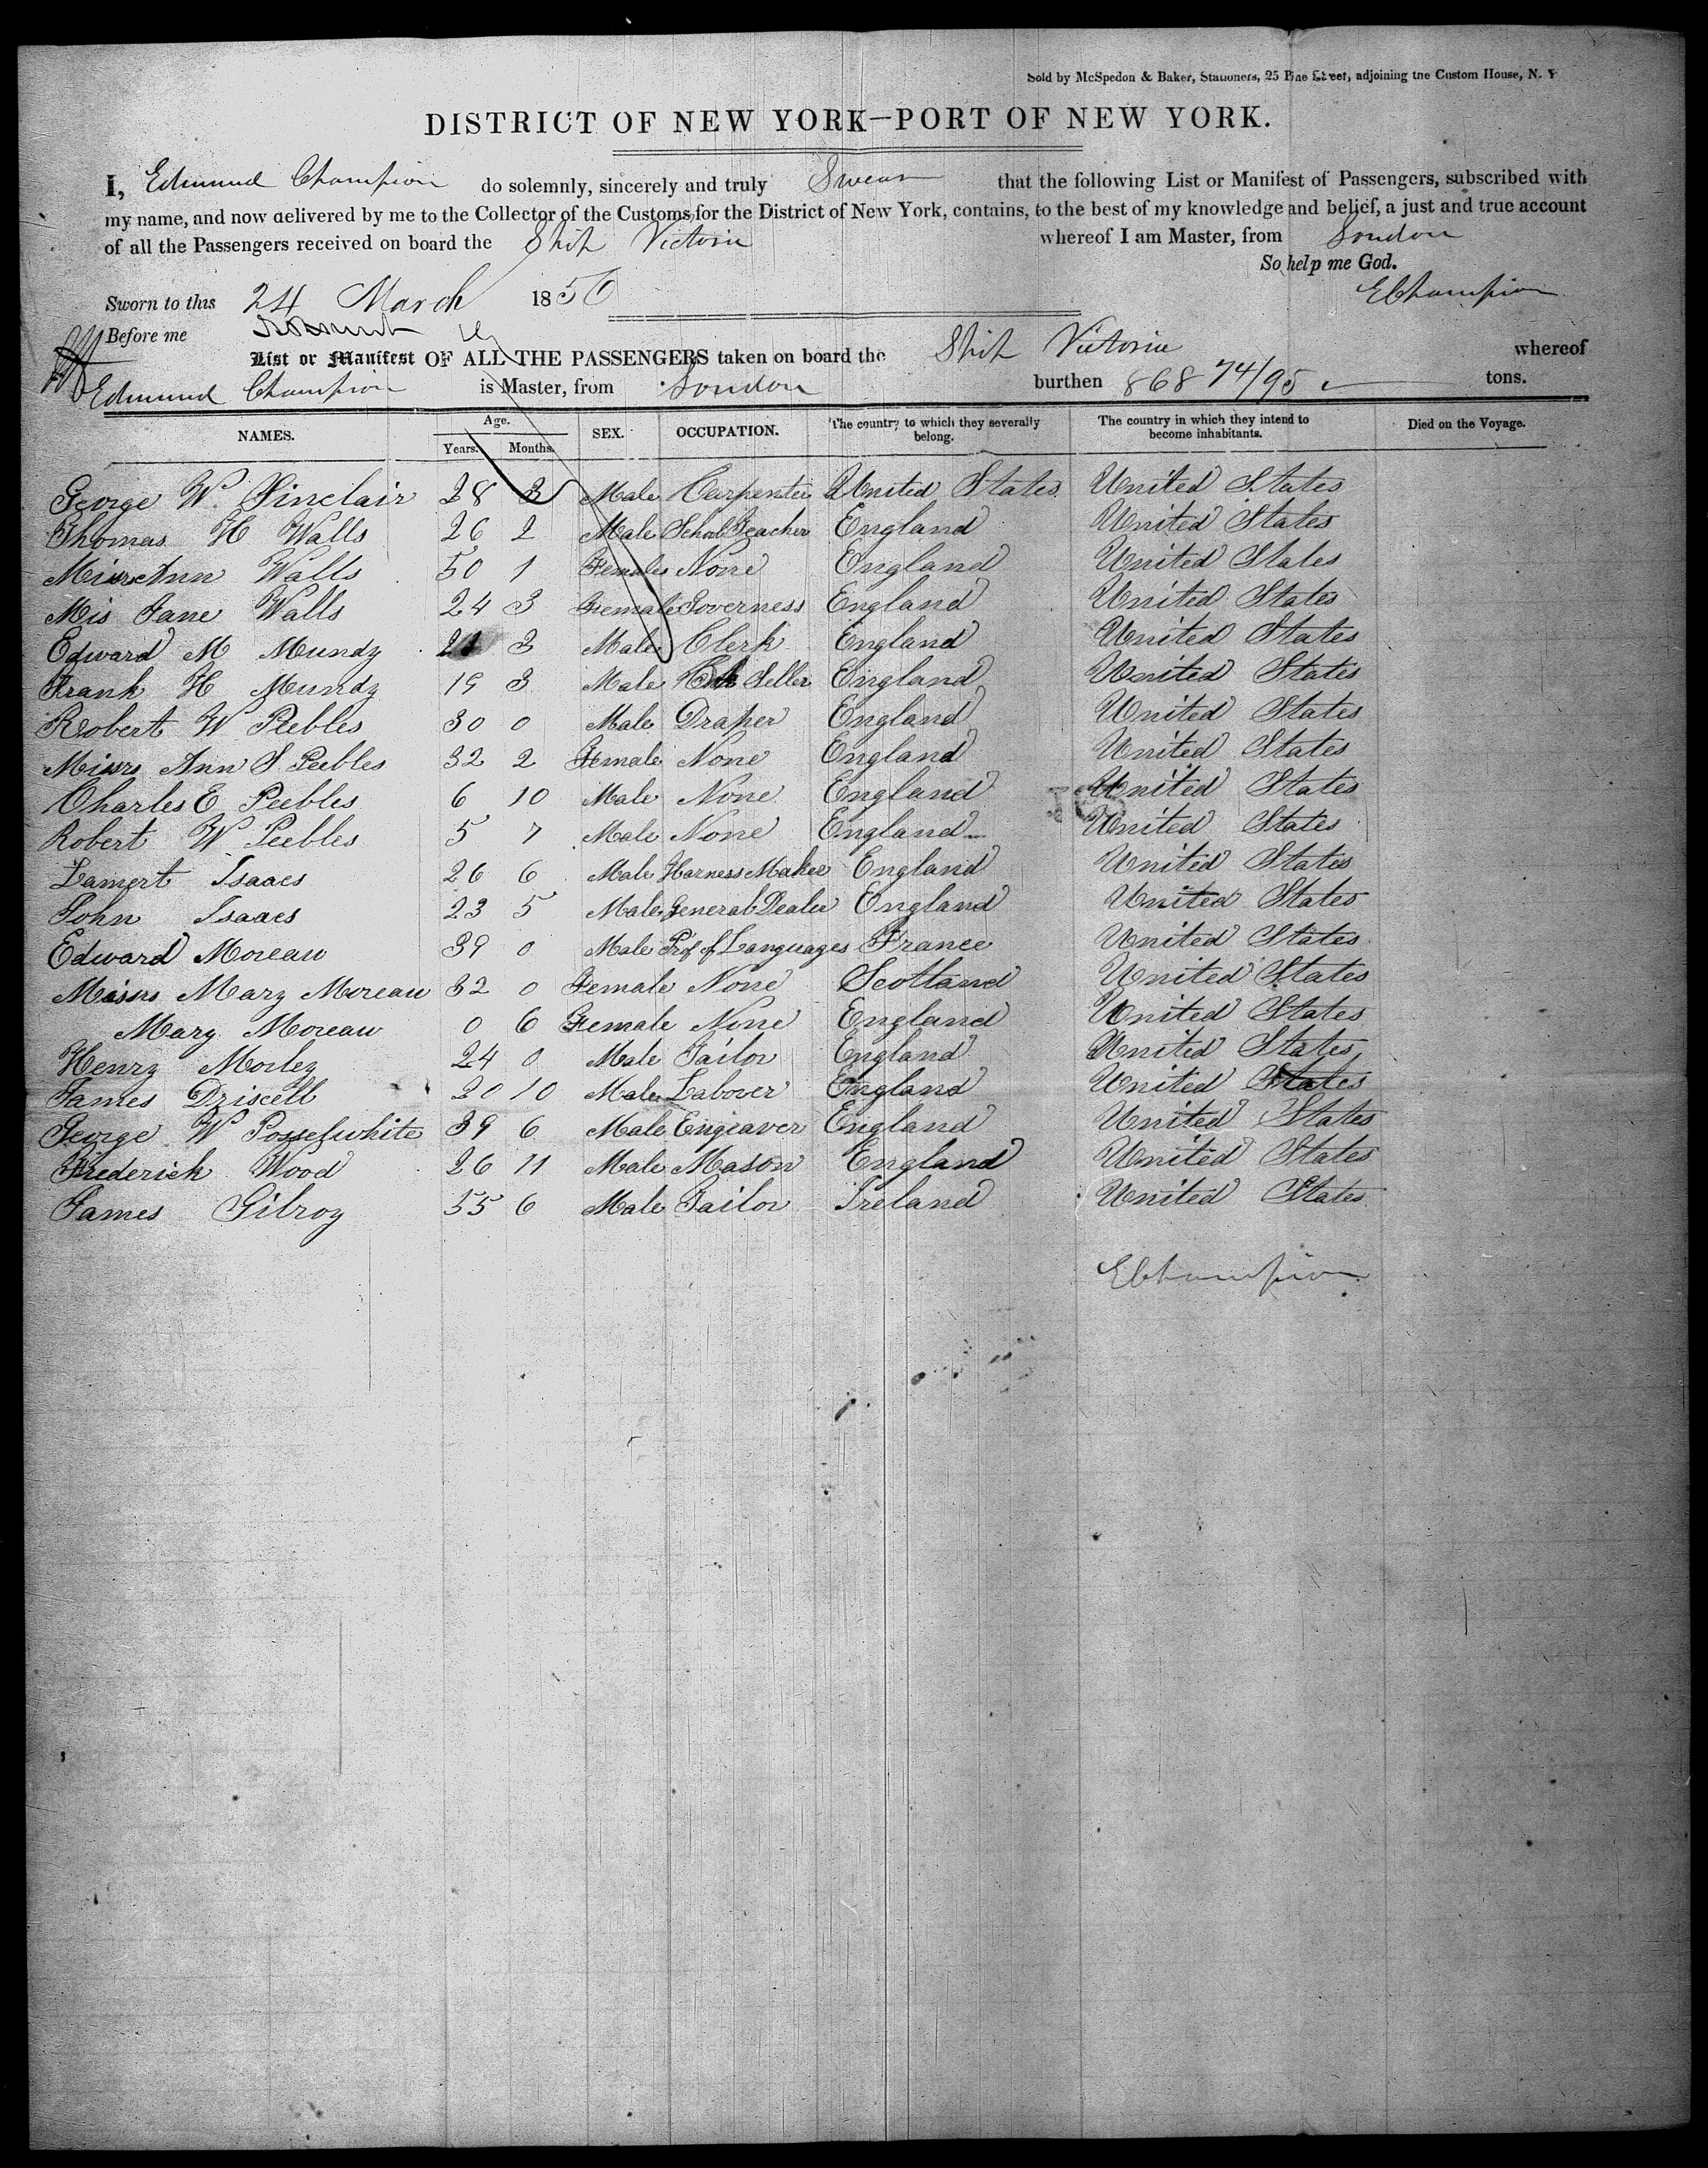 Sold by McSpedon & Baker, Stationers, 25 Pine Street, adjoining the Custom House, N. Y
DISTRICT OF NEW YORK—PORT OF NEW YORK.
I, Edmund Champion do solemnly, sincerely and truly Swear that the following List or Manifest of Passengers, subscribed with
my name, and now delivered by me to the Collector of the Customs for the District of New York, contains, to the best of my knowledge and belief, a just and true account
of all the Passengers received on board the Ship Victoria whereof I am Master, from London
So help me God.
Sworn to this 24 March 1856 EChampion
Before me
List or Manifest OF ALL THE PASSENGERS taken on board the Ship Victoria whereof
Edmund Champion is Master, from London burthen 868 74/95 tons.
NAMES. Age. Years. Months. SEX. OCCUPATION. The country to which they severally belong. The country in which they intend to become inhabitants. Died on the Voyage.
George W. Sinclair 28 3 Male Carpenter United States United States
Thomas H Walls 26 2 Male School Teacher England United States
Missrs Ann Walls 50 1 Females None England United States
Mis Jane Walls 24 3 Female Governess England United States
Edward M Mundy 21 3 Male Clerk England United States
Frank H Mundy 19 3 Male Seller England United States
Robert W Peebles 30 0 Male Draper England United States
Missrs Ann S Peebles 32 2 Female None England United States
Charles E Peebles 6 10 Male None England United States
Robert W Peebles 5 7 Male None England United States
Lamert Isaacs 26 6 Male Harness Maker England United States
John Isaacs 23 5 Male General Dealer England United States
Edward Moreau 39 0 Male Prof of Languages France United States
Missrs Mary Moreau 32 0 Female None Scotland United States
Mary Moreau 0 6 Female None England United States
Henry Morley 24 0 Male Tailor England United States
James Driscell 20 10 Male Laborer England United States
George W Posselwhite 39 6 Male Engraver England United States
Frederick Wood 26 11 Male Mason England United States
James Gilroy 55 6 Male Tailor Ireland United States
EChampion